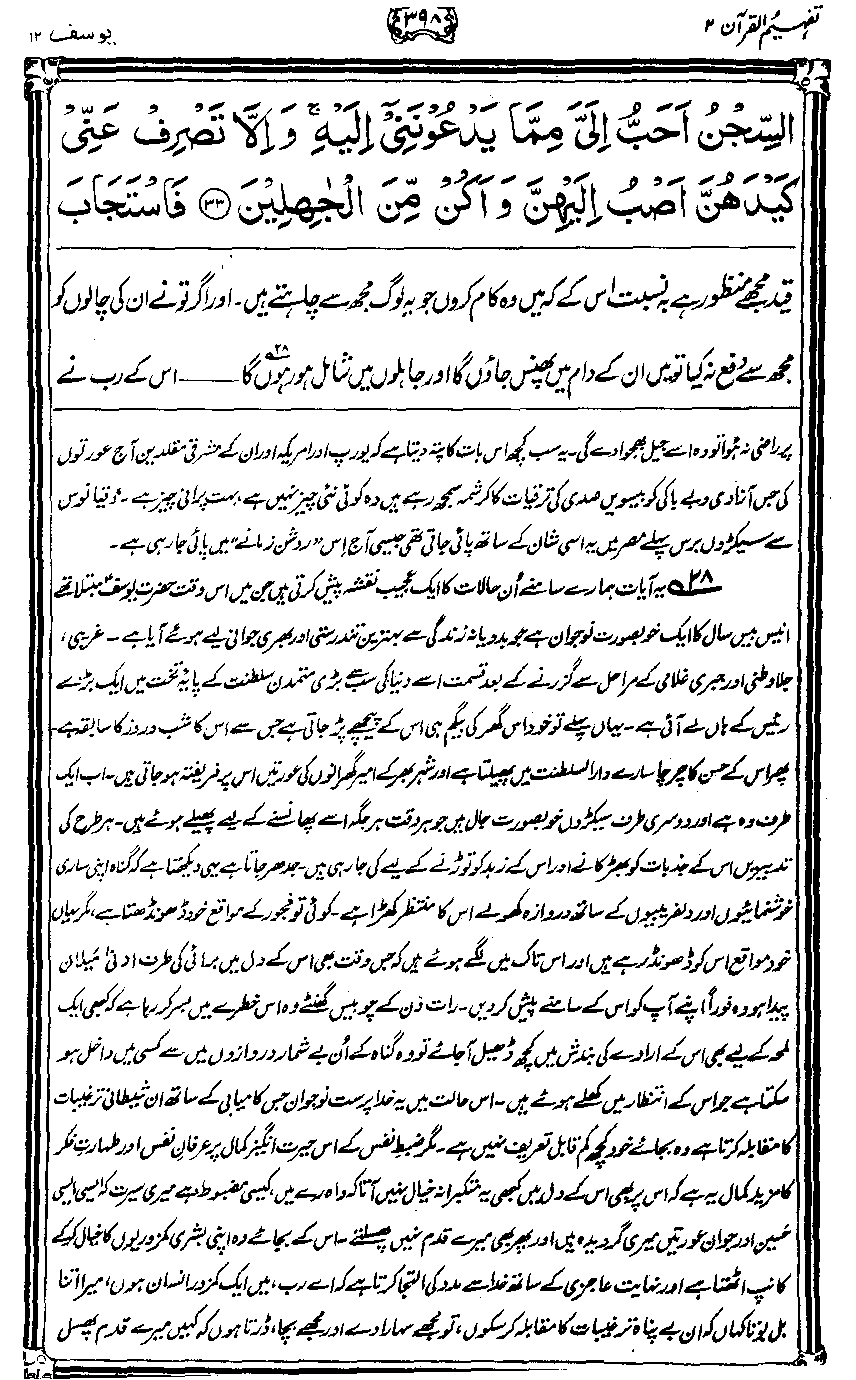 تفہیم القرآن ۲
۳۹۸
یوسف ۱۲
السِّجْنُ اَحَبُّ اِلَیَّ مِمَّا یَدْعُوْنَنِیْۤ اِلَیْهِ ۚ وَ اِلَّا تَصْرِفْ عَنِّیْ
كَیْدَهُنَّ اَصْبُ اِلَیْهِنَّ وَ اَكُنْ مِّنَ الْجٰهِلِیْنَ ﴿۳۳﴾ فَاسْتَجَابَ
قید مجھے منظور ہے بہ نسبت اس کے کہ میں وہ کام کروں جو یہ لوگ مجھ سے چاہتے ہیں۔ اور اگر تو نے ان کی چالوں کو
مجھ سے دفع نہ کیا تو میں ان کے دام میں پھنس جاؤں گا اور جاہلوں میں شامل ہو رہوں گا۲۸ ــــــ اس کے رب نے
پر راضی نہ ہوا تو وہ اسے جیل بھجوا دے گی۔ یہ سب کچھ اس بات کا پتہ دیتا ہے کہ یورپ اور امریکہ اور ان کے مشرقی مقلدین آج عورتوں
کی جس آزادی و بے باکی کو بیسویں صدی کی ترقیات کا کرشمہ سمجھ رہے ہیں وہ کوئی نئی چیز نہیں ہے، بہت پرانی چیز ہے۔ دقیانوس
سے سیکڑوں برس پہلے مصر میں یہ اسی شان کے ساتھ پائی جاتی تھی جیسی آج اِس ”روشن زمانے“ میں پائی جا رہی ہے۔
۲۸ یہ آیات ہمارے سامنے اُن حالات کا ایک عجیب نقشہ پیش کرتی ہیں جن میں اس وقت حضرت یوسفؑ مبتلا تھے
انیس بیس سال کا ایک خوبصورت نوجوان ہے جو بدویانہ زندگی سے بہترین تندرستی اور بھری جوانی لیے ہوئے آیا ہے۔ غریبی،
جلاوطنی اور جبری غلامی کے مراحل سے گزرنے کے بعد قسمت اسے دنیا کی سب سے بڑی متمدن سلطنت کے پایۂ تخت میں ایک بڑے
رئیس کے ہاں لے آئی ہے۔ یہاں پہلے تو خود اس گھر کی بیگم ہی اس کے پیچھے پڑ جاتی ہے جس سے اس کا شب و روز کا سابقہ ہے۔
پھر اس کے حسن کا چرچا سارے دارالسلطنت میں پھیلتا ہے اور شہر بھر کے امیر گھرانوں کی عورتیں اس پر فریفتہ ہو جاتی ہیں۔ اب ایک
طرف وہ ہے اور دوسری طرف سیکڑوں خوبصورت جال ہیں جو ہر وقت ہر جگہ اسے پھانسنے کے لیے پھیلے ہوئے ہیں۔ ہر طرح کی
تدبیریں اس کے جذبات کو بھڑکانے اور اس کے زہد کو توڑنے کے لیے کی جا رہی ہیں۔ جدھر جاتا ہے یہی دیکھتا ہے کہ گناہ اپنی ساری
خوشنمائیوں اور دلفریبیوں کے ساتھ دروازہ کھولے اس کا منتظر کھڑا ہے۔ کوئی تو فجور کے مواقع خود ڈھونڈھتا ہے، مگر یہاں
خود مواقع اس کو ڈھونڈ رہے ہیں اور اس تاک میں لگے ہوئے ہیں کہ جس وقت بھی اس کے دل میں برائی کی طرف ادنیٰ میلان
پیدا ہو وہ فوراً اپنے آپ کو اس کے سامنے پیش کر دیں۔ رات دن کے چوبیس گھنٹے وہ اس خطرے میں بسر کر رہا ہے کہ کبھی ایک
لمحہ کے لیے بھی اس کے ارادے کی بندش میں کچھ ڈھیل آ جائے تو وہ گناہ کے اُن بے شمار دروازوں میں سے کسی میں داخل ہو
سکتا ہے جو اس کے انتظار میں کھلے ہوئے ہیں۔ اس حالت میں یہ خدا پرست نوجوان جس کامیابی کے ساتھ ان شیطانی ترغیبات
کا مقابلہ کرتا ہے وہ بجائے خود کچھ کم قابل تعریف نہیں ہے۔ مگر ضبطِ نفس کے اس حیرت انگیز کمال پر عرفانِ نفس اور طہارتِ فکر
کا مزید کمال یہ ہے کہ اس پر بھی اس کے دل میں کبھی یہ متکبرانہ خیال نہیں آتا کہ واہ رے میں، کیسی مضبوط ہے میری سیرت کہ ایسی ایسی
حسین اور جوان عورتیں میری گرویدہ ہیں اور پھر بھی میرے قدم نہیں پھسلتے۔ اس کے بجائے وہ اپنی بشری کمزوریوں کا خیال کر کے
کانپ اٹھتا ہے اور نہایت عاجزی کے ساتھ خدا سے مدد کی التجا کرتا ہے کہ اے رب، میں ایک کمزور انسان ہوں، میرا اتنا
بل بوتا کہاں کہ ان بے پناہ ترغیبات کا مقابلہ کر سکوں، تو مجھے سہارا دے اور مجھے بچا، ڈرتا ہوں کہ کہیں میرے قدم پھسل